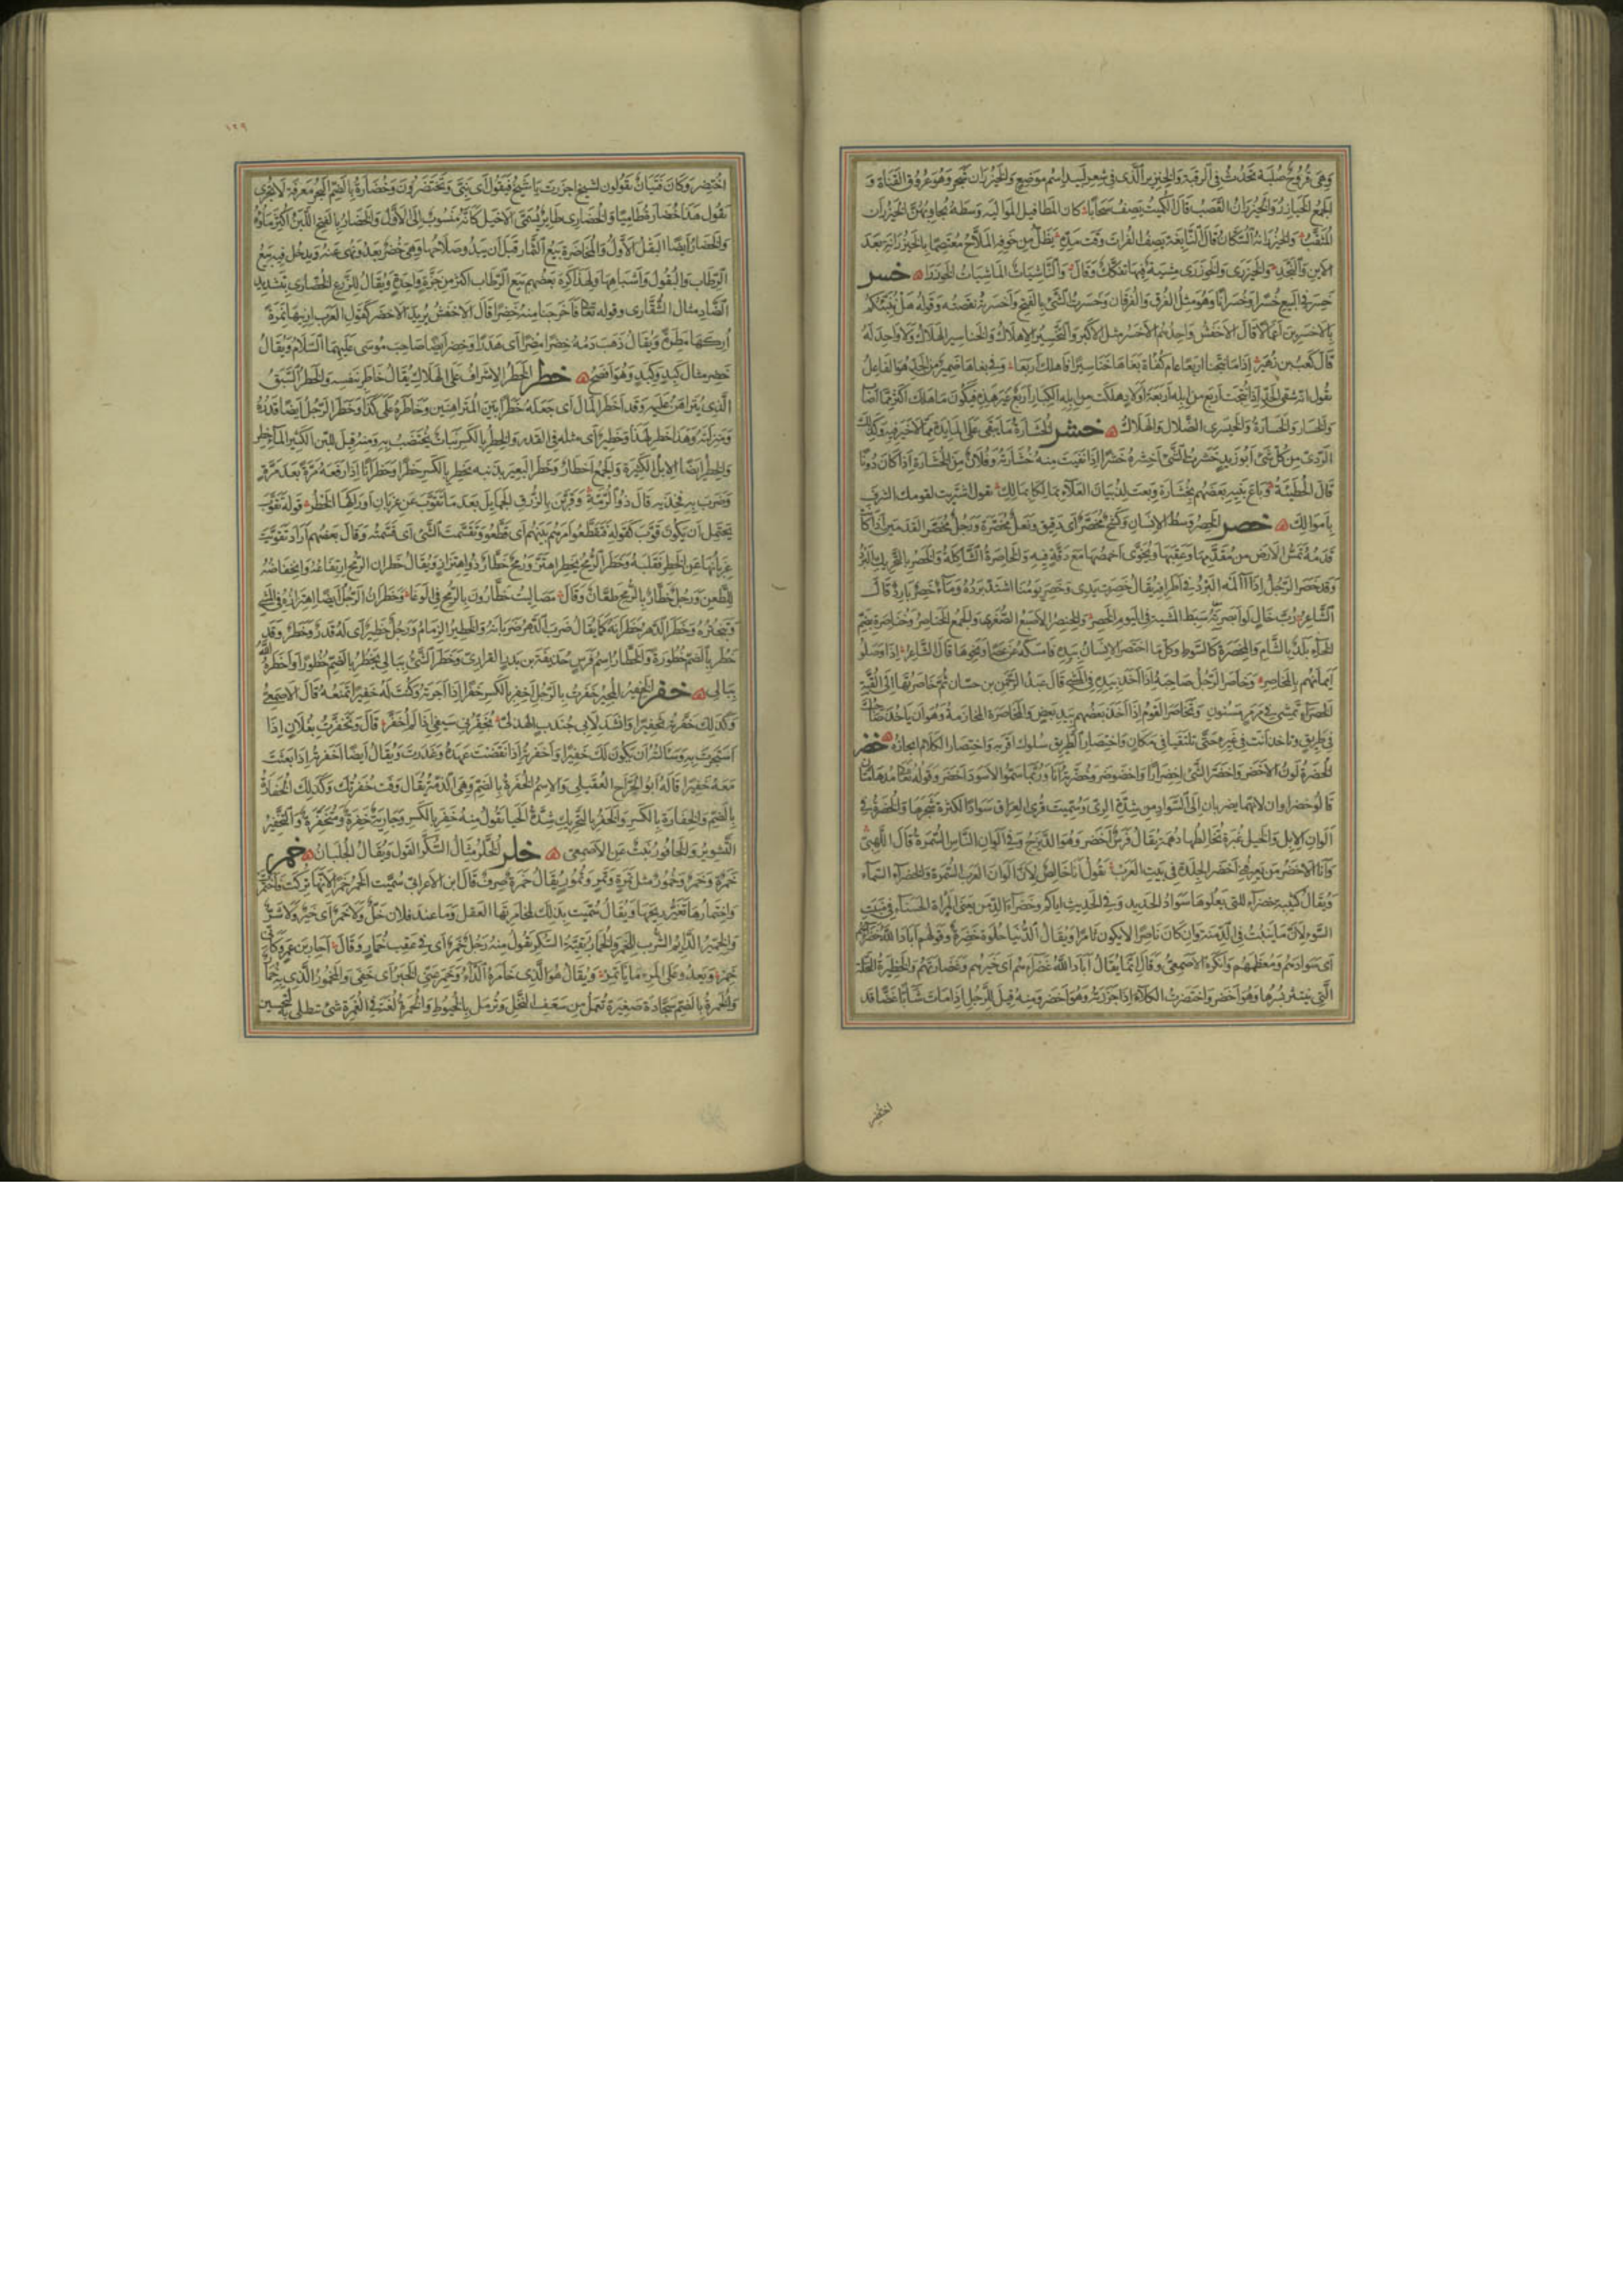 وهي قروح صلبة تحدث في الرقبة والخنزير الذي في شعر لبيد اسم موضع والخيزران شجر وهو عروق القناة و
الجمع الخيازر والخيزران القصب قال الكميت يصف سحابا كان المطافيل المواليه وسطه يجاوبهن الخيزران
المثقب والخيزرانة السكان قال النابغة يصف الفرات وقت مده يظل من خوفه الملاح معتصما بالخيزرانة بعد
الاين والنجد والخيزرى والخوزرى مشية فيها تفكك وقال والناشيات الماشيات الخوزرا خسر
خسر في البيع خسرا وخسرانا وهو مثل الفرق والفرقان وخسرت الشيء بالفتح واخسرته نقصته وقوله هل ننبئكم
بالاخسرين اعمالا قال الاخفش واحدهم الاخسر مثل الاكبر والتخسير الاهلاك والخناسير الهلاك ولا واحد له
قال كعب بن زهير اذا ما نتجنا اربعا عام كفأة بغاها خناسيرا فاهلك اربعا وفي بغاها ضمير من الجد هو الفاعل
يقول انه شقي الجد اذا نتجت اربع من ابله اربعة اولاد هلكت من ابله الكبار اربع غير هذه فيكون ما هلك اكثر مما اصاب
والخسار والخسارة والخيسرى الضلال والهلاك خشر الخشارة ما يبقى على المائدة مما لا خير فيه وكذلك
الردي من كل شيء ابو زيد خشرت الشيء اخشره خشرا اذا نقيت منه خشارته وفلان من الخشارة اذا كان دونا
قال الحطيئة وباع بنيه بعضهم بخشارة وبعت لذبيان العلاء بمالكا يقول اشتريت لقومك الشرف
باموالك خصر الخصر وسط الانسان وكشح مخصر اي دقيق ونعل مخصرة ورجل مخصر القدمين اذا كانت
قدمه تمس الارض من مقدمها وعقبها ويخوى اخمصها مع دقة فيه والخاصرة الشاكلة والخصر بالتحريك البرد
وقد خصر الرجل اذا آلمه البرد في اطرافه يقال خصرت يدي وخصر يومنا اشتد برده وماء خصر بارد قال
الشاعر رب خال لي لو ابصرته سبط المشية في اليوم الخصر والخنصر الاصبع الصغرى والجمع الخناصر وخناصرة بضم
الخاء بلد بالشام والمخصرة كالسوط وكل ما اختصر الانسان بيده فامسكه من عصا ونحوها قال الشاعر اذا وصلوا
ايمانهم بالمخاصر وخاصر الرجل صاحبه اذا اخذ بيده في المشي قال عبد الرحمن بن حسان ثم خاصرتها الى القبة
الخضراء تمشي في مرمر مسنون وتخاصر القوم اذا اخذ بعضهم بيد بعض والمخاصرة المخازمة وهو ان ياخذ صاحبك
في طريق وتاخذ انت في غيره حتى تلتقيا في مكان واختصار الطريق سلوك اقربه واختصار الكلام ايجازه خضر
الخضرة لون الاخضر واخضر الشيء اخضرارا واخضوضر وخضرته انا وربما سموا الاسود اخضر وقوله تعالى مدهامتان
قالوا خضراوان لانهما يضربان الى السواد من شدة الري وسميت قرى العراق سوادا لكثرة شجرها والخضرة في
الوان الابل والخيل غبرة تخالطها دهمة يقال فرس اخضر وهو الديزج وفي الوان الناس السمرة قال اللهبي
وانا الاخضر من يعرفني اخضر الجلدة في بيت العرب يقول انا خالص لان الوان العرب السمرة والخضراء السماء
ويقال كتيبة خضراء للتي يعلوها سواد الحديد وفي الحديث اياكم وخضراء الدمن يعني المرأة الحسناء في منبت
السوء لان ما ينبت في الدمنة وان كان ناضرا لا يكون ثامرا ويقال الدنيا حلوة خضرة وقولهم اباد الله خضراءهم
اي سوادهم ومعظمهم وانكره الاصمعي وقال انما يقال اباد الله غضراءهم اي خيرهم وغضارتهم والخضيرة النخلة
التي ينتثر بسرها وهو اخضر واختضرت الكلأ اذا جززته وهو اخضر ومنه قيل للرجل اذا مات شابا غضا قد
اختضر
١٢٩
اختضر وكان فتيان يقولون لشيخ اجززت يا شيخ فيقول اي بني وتختضرون وخضارة بالضم البحر معرفة لا يجرى
تقول هذا خضارة طاميا والخضاري طاير يسمى الاخيل كانه منسوب الى الاول والخضار بالفتح اللبن اكثر ماؤه
والخضار ايضا البقل الاول والمخاضرة بيع الثمار قبل ان يبدو صلاحها وهي خضر بعد ونهى عنه ويدخل فيه بيع
الرطاب والبقول واشباهها ولهذا كره بعضهم بيع الرطاب اكثر من جزة واحدة ويقال للزرع الخضارى بتشديد
الضاد مثال الشقارى وقوله تعالى فاخرجنا منه خضرا قال الاخفش يريد الاخضر كقول العرب ارنيها نمرة
اركها مطرة ويقال ذهب دمه خضرا مضرا اي هدرا وخضر ايضا صاحب موسى عليهما السلام ويقال
خضر مثال كبد وكبد وهو افصح خطر الخطر الاشراف على الهلاك يقال خاطر بنفسه والخطر السبق
الذي يتراهن عليه وقد اخطر المال اي جعله خطرا بين المتراهنين وخاطره على كذا وخطر الرجل ايضا قدره
ومنزلته وهذا خطر لهذا وخطير اي مثله في القدر والخطر بالكسر نبات يختضب به ومنه قيل للبن الكثير الماء خطر
والخطر ايضا الابل الكثيرة والجمع اخطار وخطر البعير بذنبه يخطر بالكسر خطرا وخطرانا اذا رفعه مرة بعد مرة
وضرب به فخذيه قال ذو الرمة وقربن بالزرق الجمايل بعد ما تقوب عن غربان اوراكها الخطر قوله تقوب
يحتمل ان يكون قوب كقوله فتقطعوا امرهم بينهم اي قطعوا وتقسمت الشيء اي قسمته وقال بعضهم اراد تقوبت
غربانها عن الخطر فقلبه وخطر الرمح يخطر اهتز ورمح خطار ذو اهتزاز ويقال خطران الرمح ارتفاعه وانخفاضه
للطعن ورجل خطار بالرمح طعان وقال مصاليت خطارون بالرمح في الوغا وخطران الرجل ايضا اهتزازه في المشي
وتبختره وخطر الدهر خطرانه كما يقال ضرب الدهر ضربانه والخطير الزمام ورجل خطير اي له قدر وخطر وقد
خطر بالضم خطورة والخطار اسم فرس حذيفة بن بدر الفزاري وخطر الشيء ببالي يخطر بالضم خطورا واخطره الله
ببالي خفر الخفير المجير خفرت بالرجل اخفر بالكسر خفرا اذا اجرته وكنت له خفيرا تمنعه قال الاصمعي
وكذلك خفرته تخفيرا وانشد لابي جندب الهذلي يخفرني سيفي اذا لم اخفر قال وتخفرت بفلان اذا
استجرت به وسالته ان يكون لك خفيرا واخفرته اذا نقضت عهده وغدرت ويقال ايضا اخفرته اذا بعثت
معه خفيرا قاله ابو الجراح العقيلي والاسم الخفرة بالضم وهي الذمة يقال وفت خفرتك وكذلك الخفارة
بالضم والخفارة بالكسر والخفر بالتحريك شدة الحيا تقول منه خفر بالكسر وجارية خفرة ومتخفرة والتخفير
التشوير والخافور نبت عن الاصمعي خلر الخلر مثال السكر الفول ويقال الجلبان خمر
خمرة وخمر وخمور مثل تمرة وتمر وتمور يقال خمرة صرف قال ابن الاعرابي سميت الخمر خمرا لانها تركت فاختمرت
واختمارها تغير ريحها ويقال سميت بذلك لمخامرتها العقل وما عند فلان خل ولا خمر اي خير ولا شر
والخمير الدايم الشرب للخمر والخمار بقية السكر تقول منه رجل خمر اي في عقب خمار وقال احار بن عمرو كاني
خمر ويعدو على المرء ما ياتمر ويقال هو الذي خامره الداء وخمر عني الخبر اي خفي والمخمور الذي به خمار
والخمرة بالضم سجادة صغيرة تعمل من سعف النخل وترمل بالخيوط والخمرة لغة في الغمرة شيء يتطلى به لتحسين